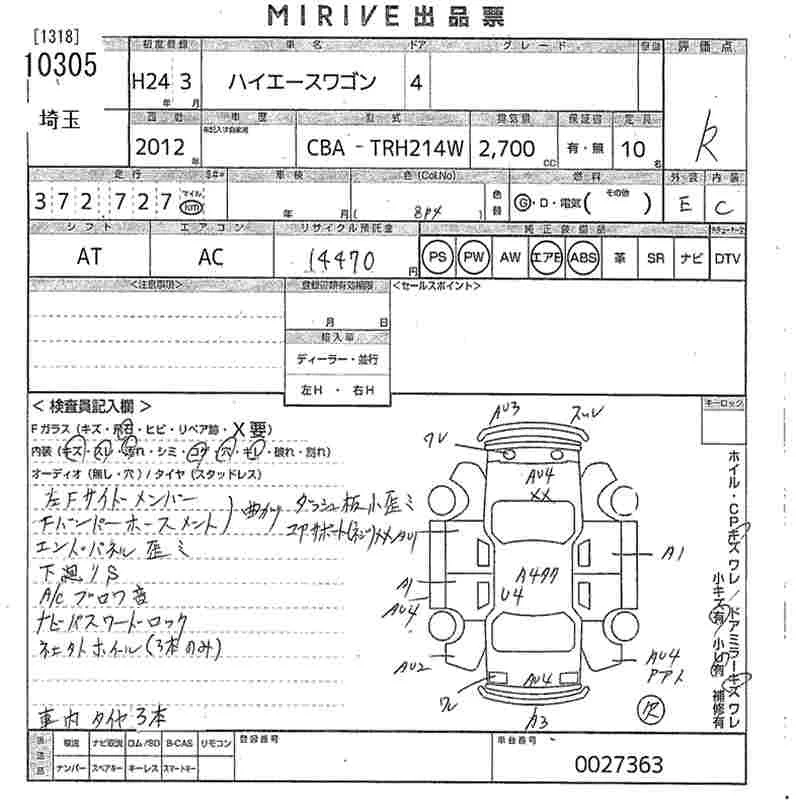 MIRIVE 出品票
[1318]
10305
埼玉
初度登録 車名 ドア グレード 評価点
H24 3 ハイエースワゴン 4
年 月
R
型式 排気量 保証書 定員
2012 年 CBA - TRH214W 2,700 CC 有・無 10 名
走行 車検 色(Col.No) 燃料 外装 内装
372,727 マイル km 年 月 ( 8P4 ) 色替 G・D・電気( その他 ) E C
シフト エアコン リサイクル預託金 純正装備品
AT AC 14470 円 PS PW AW エアB ABS 革 SR ナビ DTV
<注意事項> 登録書類有効期限 <セールスポイント>
月 日
輸入車
ディーラー・並行
左H ・ 右H
< 検査員記入欄 > キーロック
Fガラス (キズ・飛石・ヒビ・リペア跡・X要)
内装 (キズ・スレ・汚れ・シミ・コゲ・穴・キレ・破れ・割れ)
オーディオ (無し・穴) / タイヤ (スタッドレス)
左Fサイドメンバー
Fバンパーホースメント 曲がり
ダッシュ板小歪ミ
エアサポート(ネジ)XX
エンド・パネル 歪ミ
下廻りS
A/C ブロワ音
ナビパスワードロック
社外ホイール(3本のみ)
車内タイヤ3本
AU3 スレ
ワレ
AU4
XX
AU1
A1
A1
AU4
A4アア
U4
AU2
AU4
アアト
ワレ
AU4
A3
ホイル・CPキズ ワレ / ドアミラーキズ ワレ
小キズ有 / 小凹有 補修有
取説 ナビ取説 ロム/SD B-CAS リモコン 登録番号 車台番号
ナンバー スペアキー キーレス スマートキー
0027363